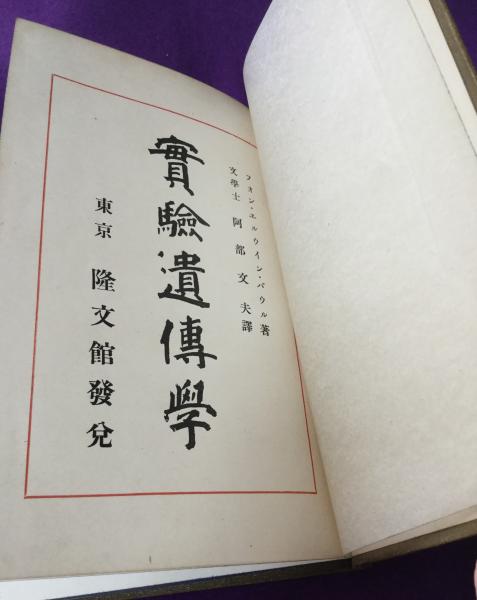 フオン・エルウイン・バウル著
文學士 阿部文夫譯
實驗遺傳學
東京 隆文館發兌